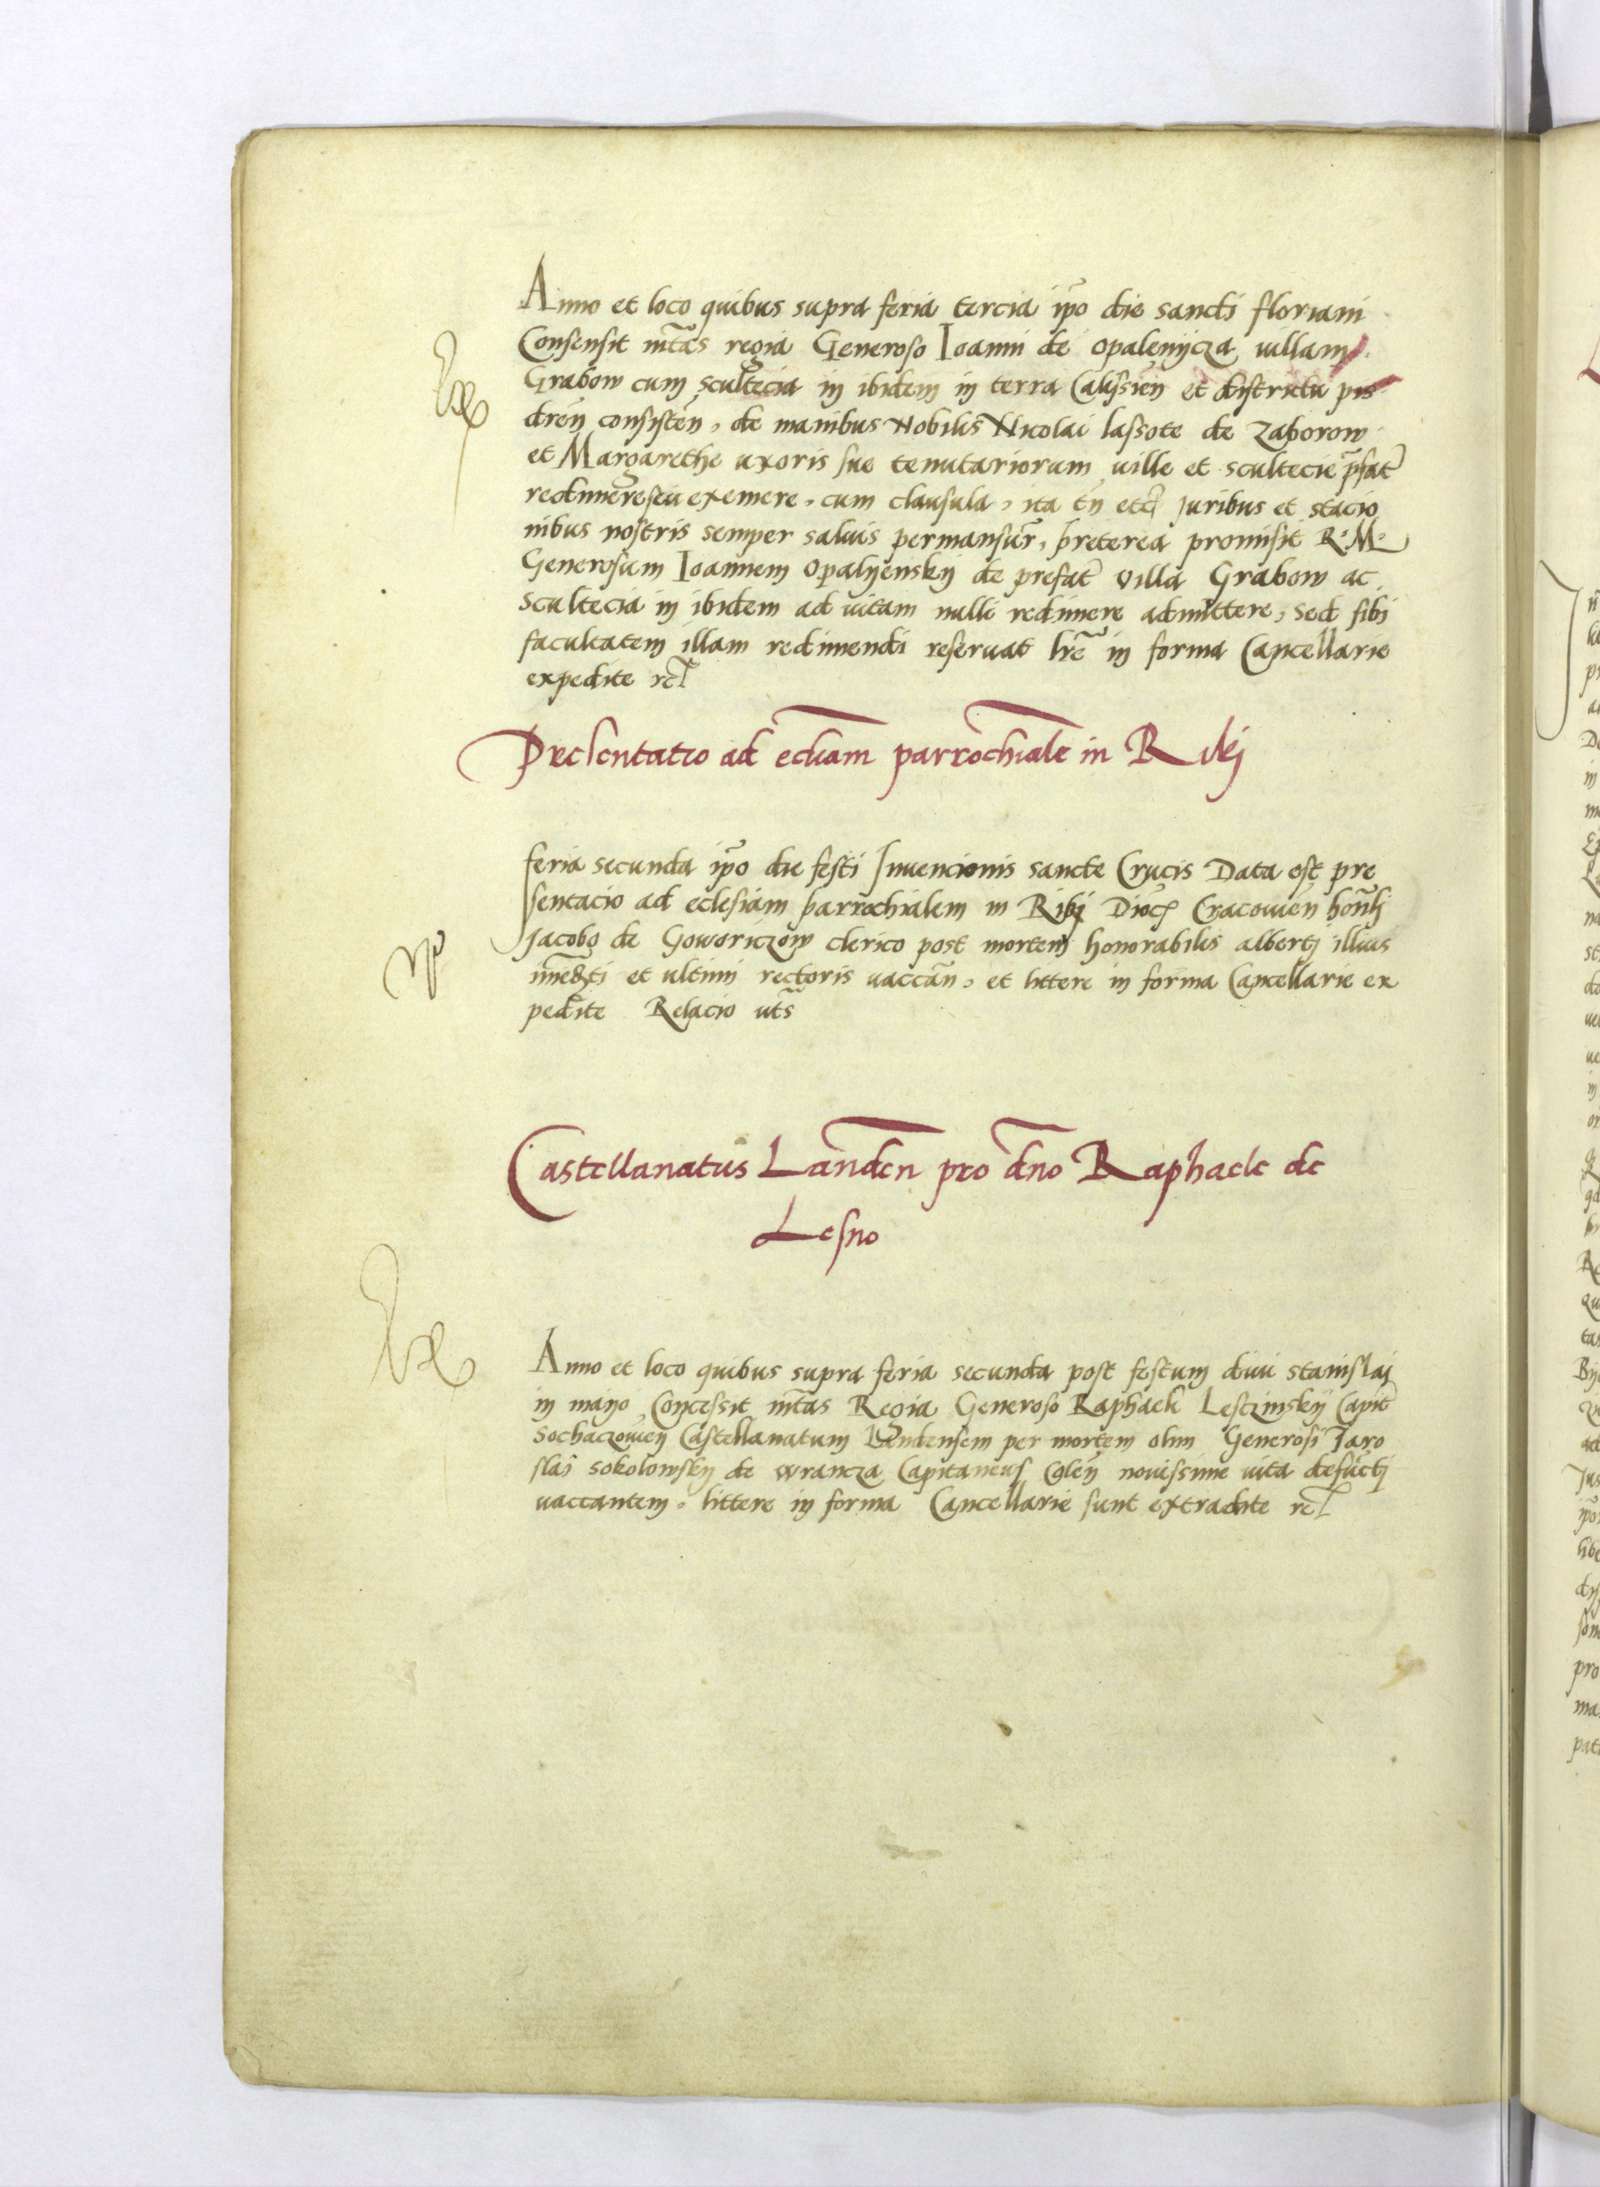 Anno et loco quibus supra feria tercia ip̃o die sancti floriani
Consensit mt̃as regia Generoso Ioanni de opalenijcza villam
Grabow cum scultecia in ibidem in terra Calissień et districtu pis
dreń consisteń, de manibus Nobilis Nicolai lassote de zaborow
et Margarethe uxoris sue tenutariorum ville et scultecie p̃fat̃
redimere seu exemere, cum clausula, ita tñ etc̃ Juribus et stacio
nibus nostris semper salvis permansur̃, preterea promisit R. M.
Generosum Ioannem opalijenskij de prefat̃ villa Grabow ac
scultecia in ibidem ad vitam nulli redimere admittere, sed sibj
facultatem illam redimendi reservat lr̃e in forma Cancellarie
expedite rel̃
Presentatio ad ecc̃liam parrochialẽ in Ribj
feria secunda ip̃o die festi Invencionis sancte Crucis Data est pre
sentacio ad eclesiam parrochialem in Ribj Dioc̃ Cracovień hon̄lj
Jacobo de Goworiczow clerico post mortem honorabilis albertj illius
im̃e&ti et ultimi rectoris vaccañ, et littere in forma Cancellarie ex
pedite Relacio ut s̃
Castellanatus Landeñ pro dño Raphaele de
Lesno
Anno et loco quibus supra feria secunda post festum divi stanislaj
in maijo Concessit mt̃as Regia Generoso Raphaeli Lesczinskij Capit̃
Sochaczovień Castellanatum Lendensem per mortem olim Generosi Jaro
slai sokolowskij de wrancza Capitaneus Coleń novissime vita defũctj
vaccantem, littere in forma Cancellarie sunt extradite rel̃